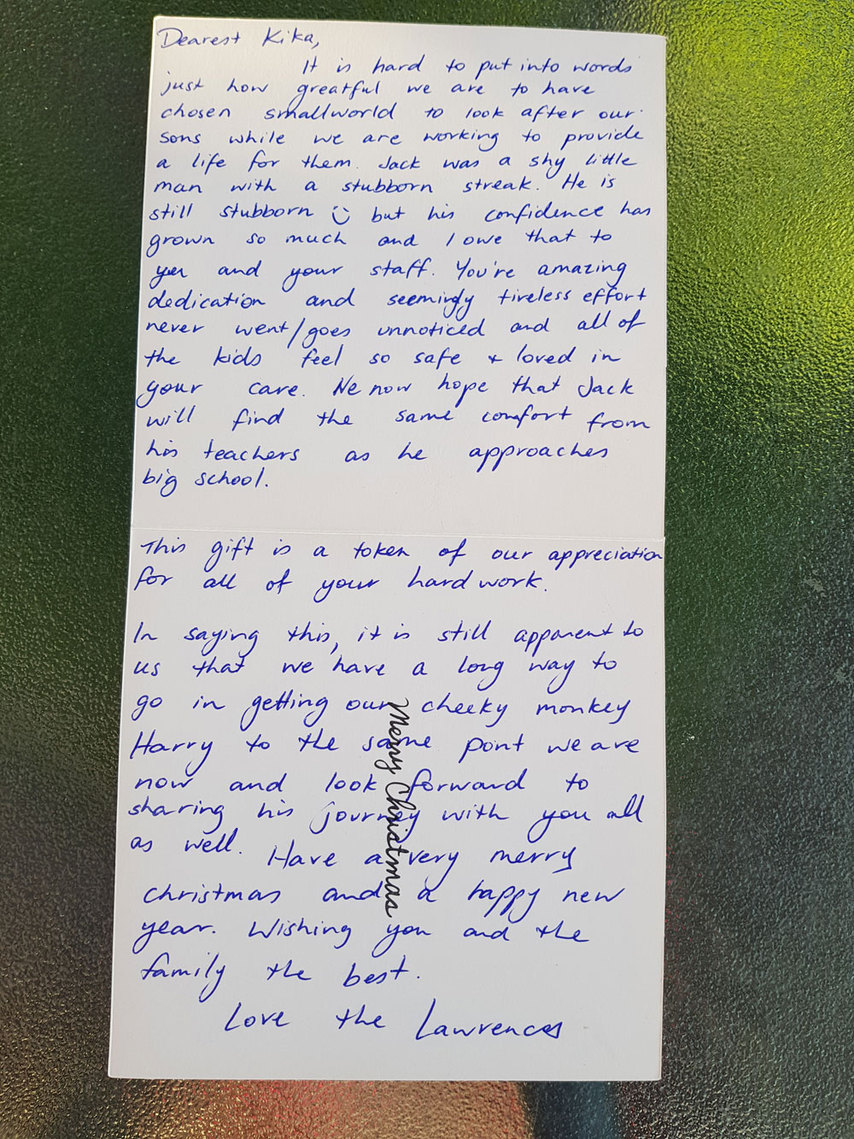 Dearest Kika,
It is hard to put into words
just how greatful we are to have
chosen smallworld to look after our
sons while we are working to provide
a life for them. Jack was a shy little
man with a stubborn streak. He is
still stubborn ☺ but his confidence has
grown so much and I owe that to
you and your staff. You're amazing
dedication and seemingly tireless effort
never went/goes unnoticed and all of
the kids feel so safe + loved in
your care. We now hope that Jack
will find the same comfort from
his teachers as he approaches
big school.
This gift is a token of our appreciation
for all of your hard work.
In saying this, it is still apparent to
us that we have a long way to
go in getting our cheeky monkey
Harry to the same pont we are
now and look forward to
sharing his journey with you all
as well. Have a very merry
christmas and a happy new
year. Wishing you and the
family the best.
Love the Lawrences
Merry Christmas